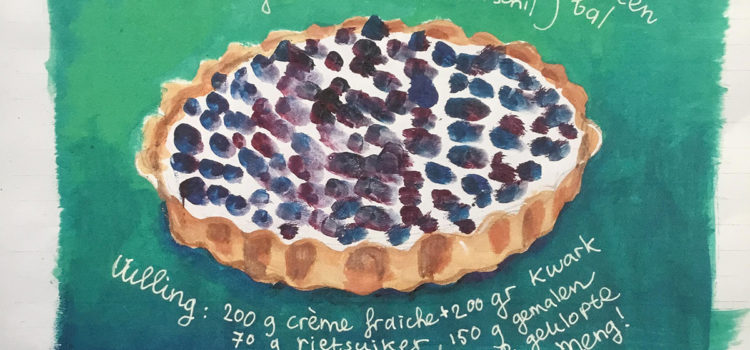 schil) bal
Vulling: 200 g crème fraîche + 200 gr kwark
70 g rietsuiker, 150 g gemalen
geklopte
meng!